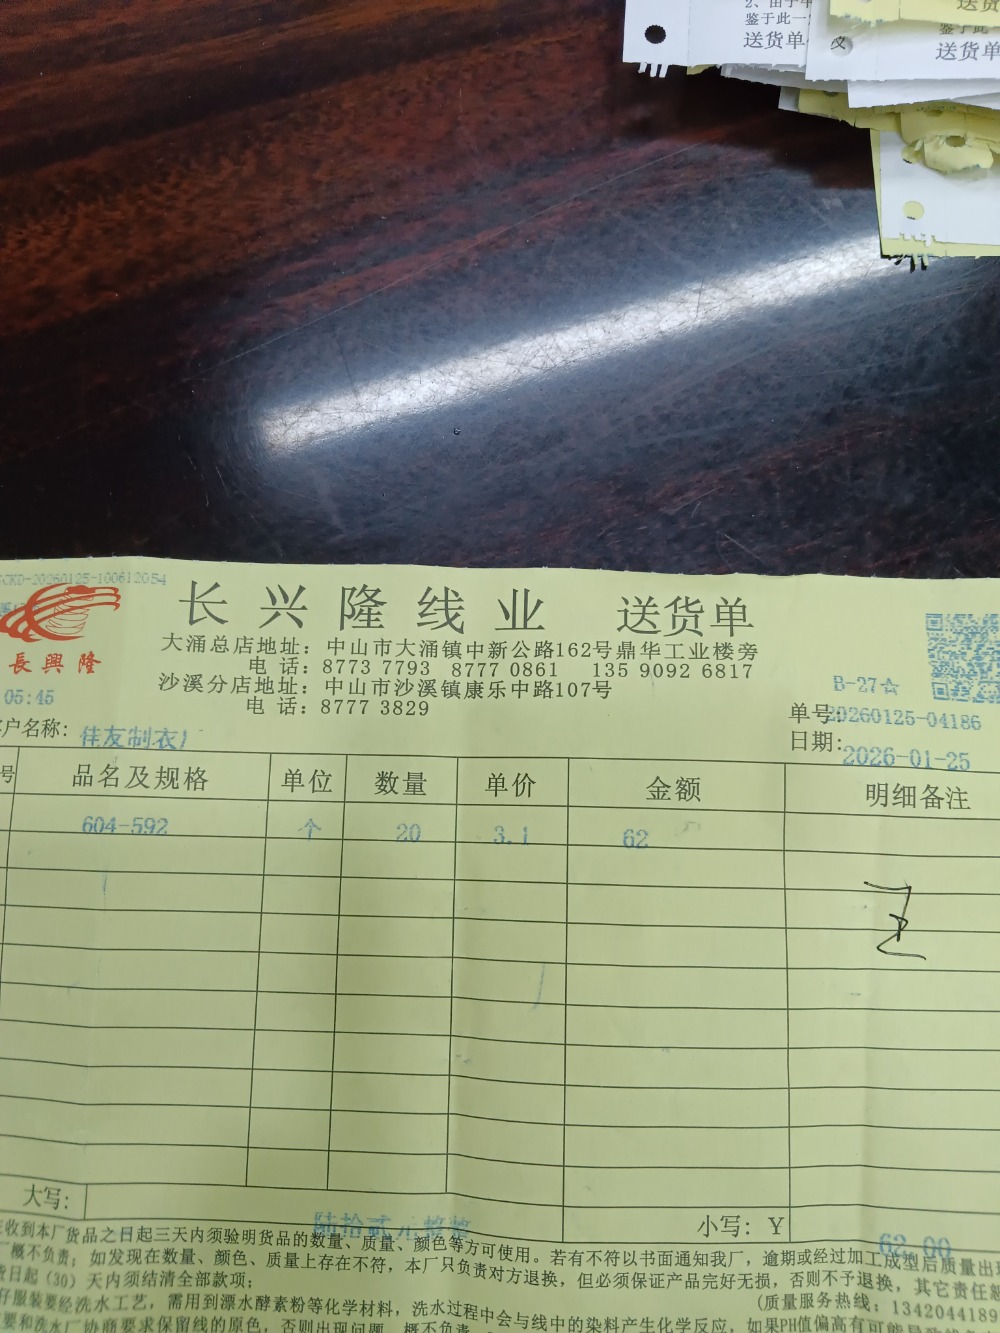 2、由于
鉴于此一
送货单
送货
鉴于此一
送货单
CKD-20260125-100612054
长兴隆线业 送货单
大涌总店地址：中山市大涌镇中新公路162号鼎华工业楼旁
電興隆
长興隆
电 话：8773 7793 8777 0861 135 9092 6817
沙溪分店地址：中山市沙溪镇康乐中路107号
电 话：8777 3829
05:45
B-27☆
单号：20260125-04186
户名称：佳友制衣厂
日期：2026-01-25
号 品名及规格 单位 数量 单价 金额 明细备注
604-592 个 20 3.1 62
大写： 陆拾贰元整
小写：Y 62.00
收到本厂货品之日起三天内须验明货品的数量、质量、颜色等方可使用。若有不符以书面通知我厂，逾期或经过加工成型后质量出现
概不负责；如发现在数量、颜色、质量上存在不符，本厂只负责对方退换，但必须保证产品完好无损，否则不予退换，其它责任
货日起（30）天内须结清全部款项；
(质量服务热线：1342044189
服装要经洗水工艺，需用到漂水酵素粉等化学材料，洗水过程中会与线中的染料产生化学反应，如果PH值偏高有可能
要和洗水厂协商要求保留线的原色，否则出现问题，概不负责